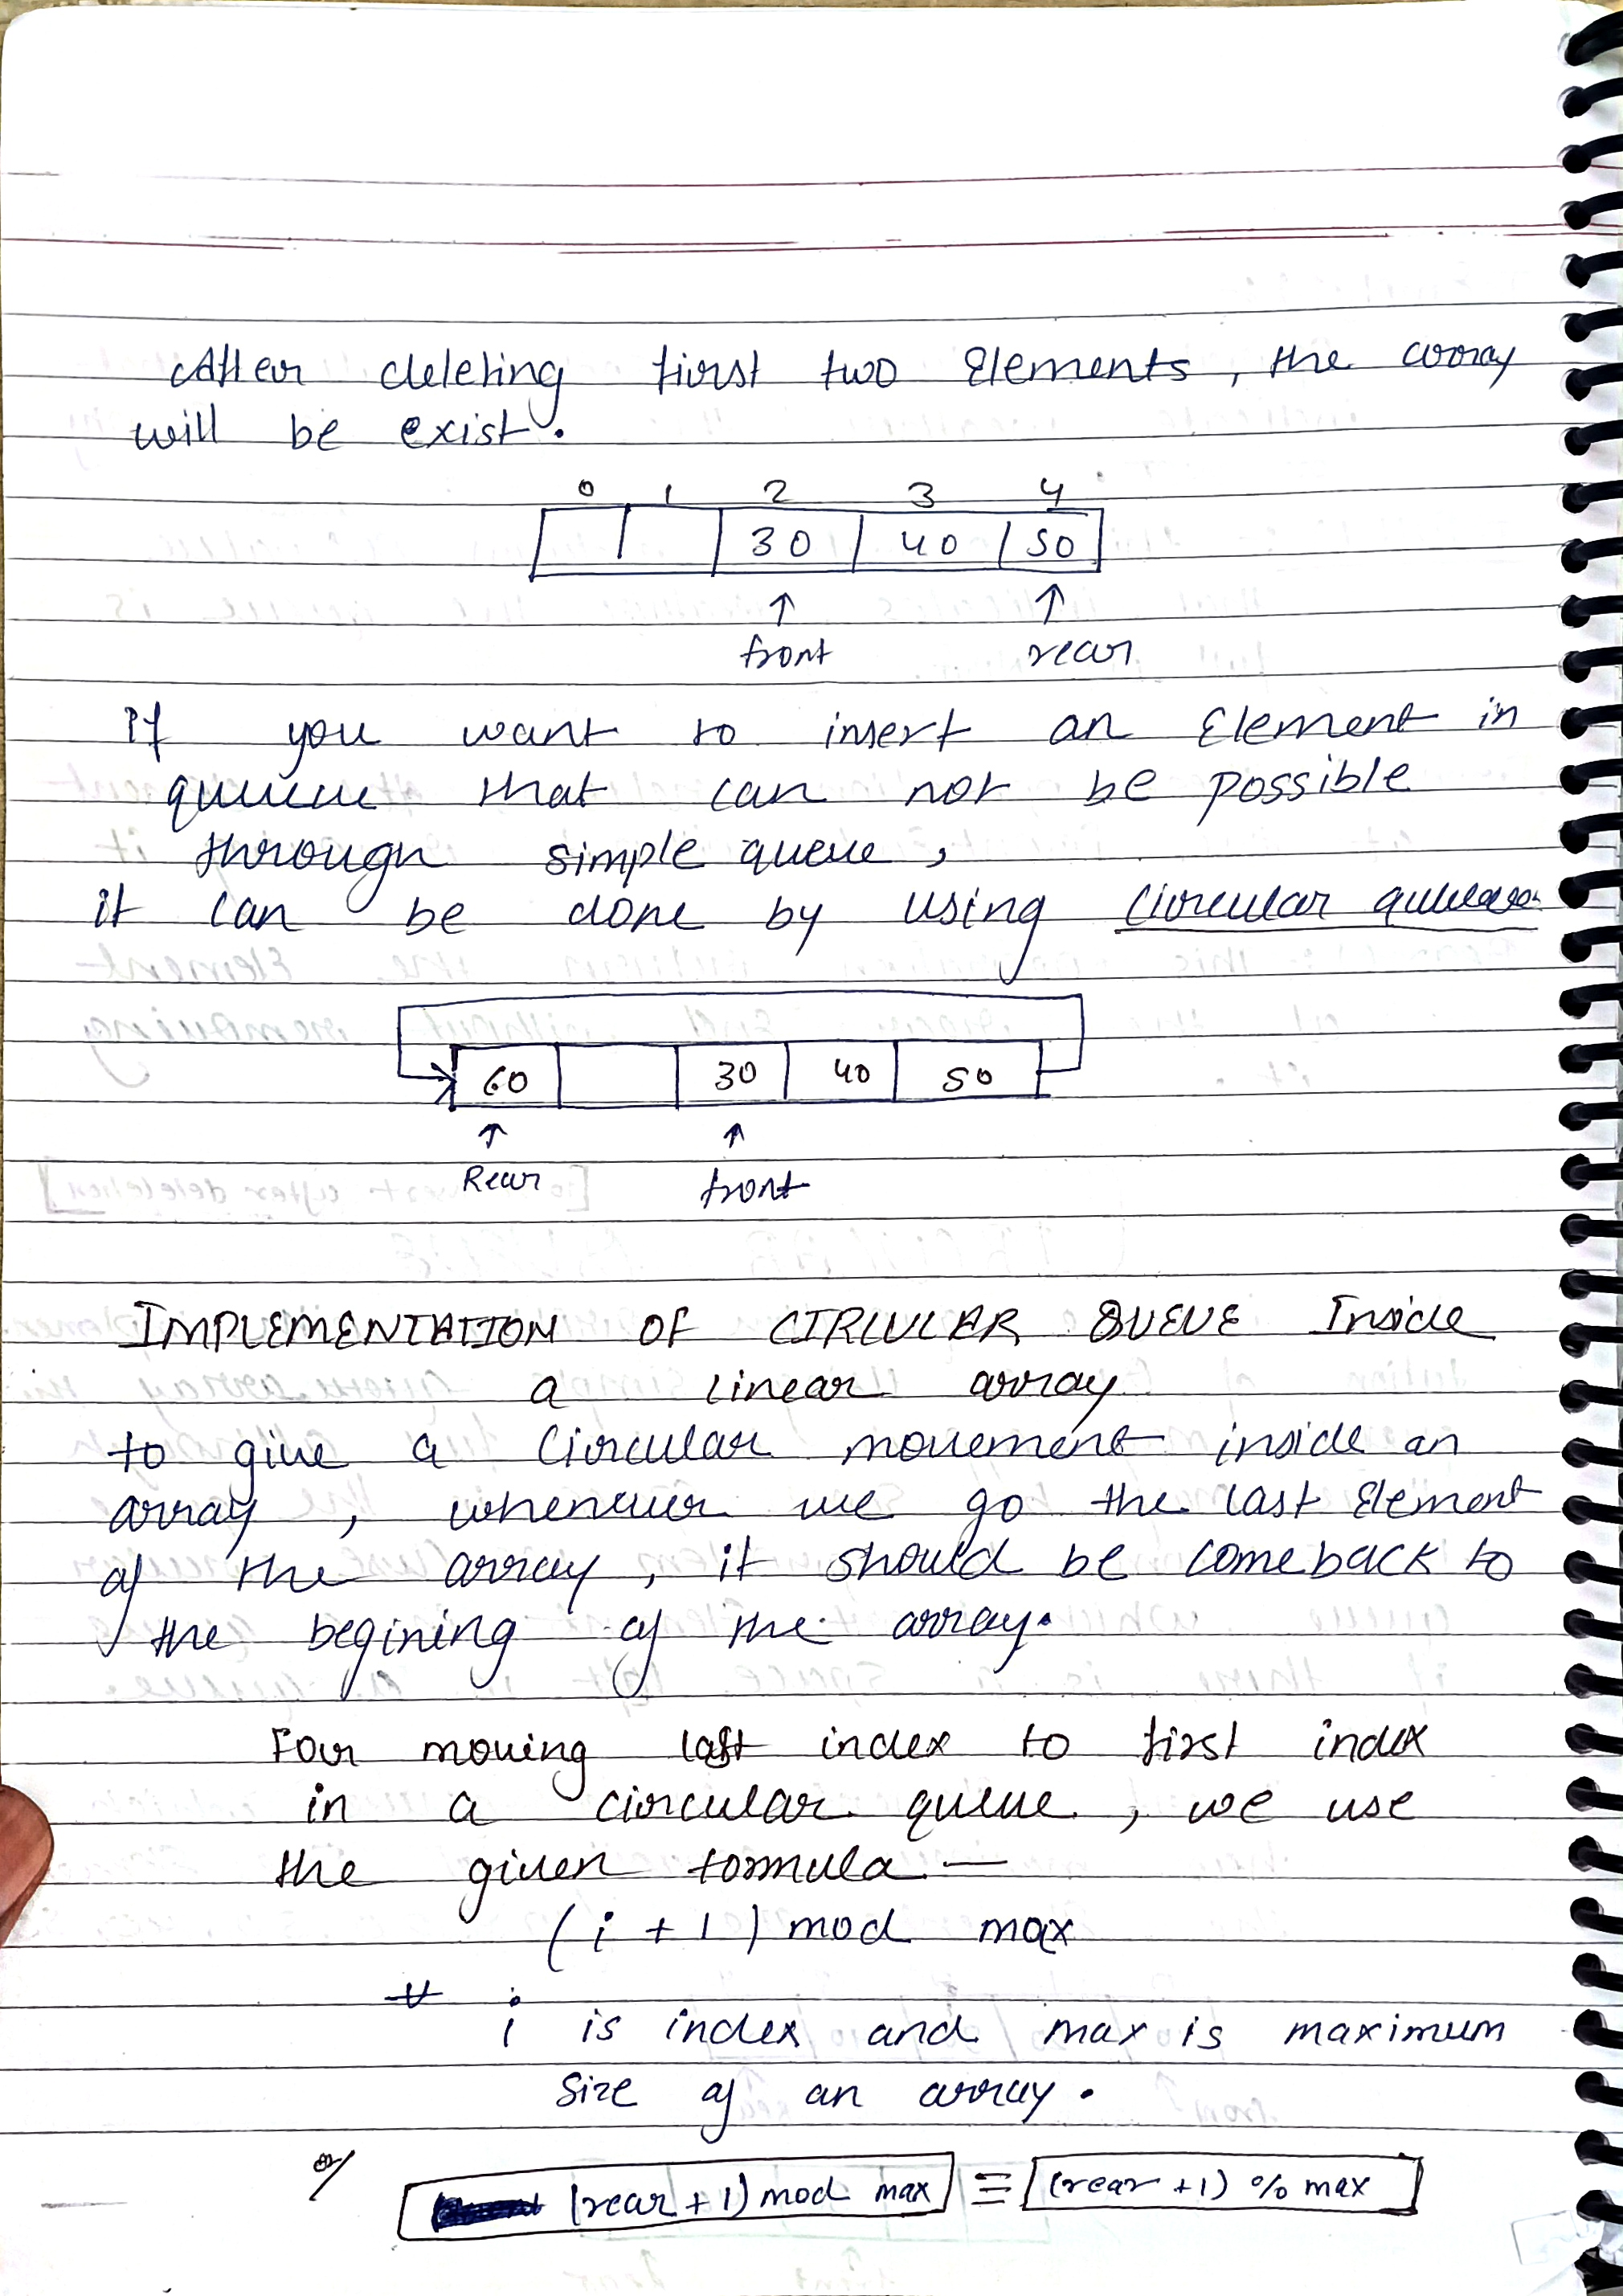 After deleting first two Elements, the array
will be exist.
0 1 2 3 4
30 40 50
front rear
If you want to insert an Element in
queue that can not be possible
through simple queue,
it can be done by using circular queue
60 30 40 50
Rear front
IMPLEMENTATION OF CIRCULAR QUEUE Inside
a linear array
to give a Circular movement inside an
array, whenever we go the last Element
of the array, it should be comeback to
the begining of the array.
For moving last index to first index
in a circular queue, we use
the given formula —
(i + 1) mod max
i is index and max is maximum
size of an array.
or/ (rear + 1) mod max ≡ (rear + 1) % max